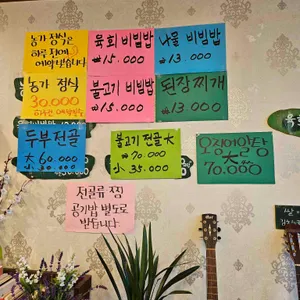 농가 정식은
하루 전에
예약 받습니다
육회 비빔밥
₩15.000
나물 비빔밥
₩13.000
농가 정식
30.000
불고기 비빔밥
₩15.000
된장찌개
₩13.000
두부전골
大 60.000
小 30.000
불고기 전골 大
₩70.000
小 35.000
오징어알탕
大
70.000
전골류 포장
공기밥 별도로
받습니다